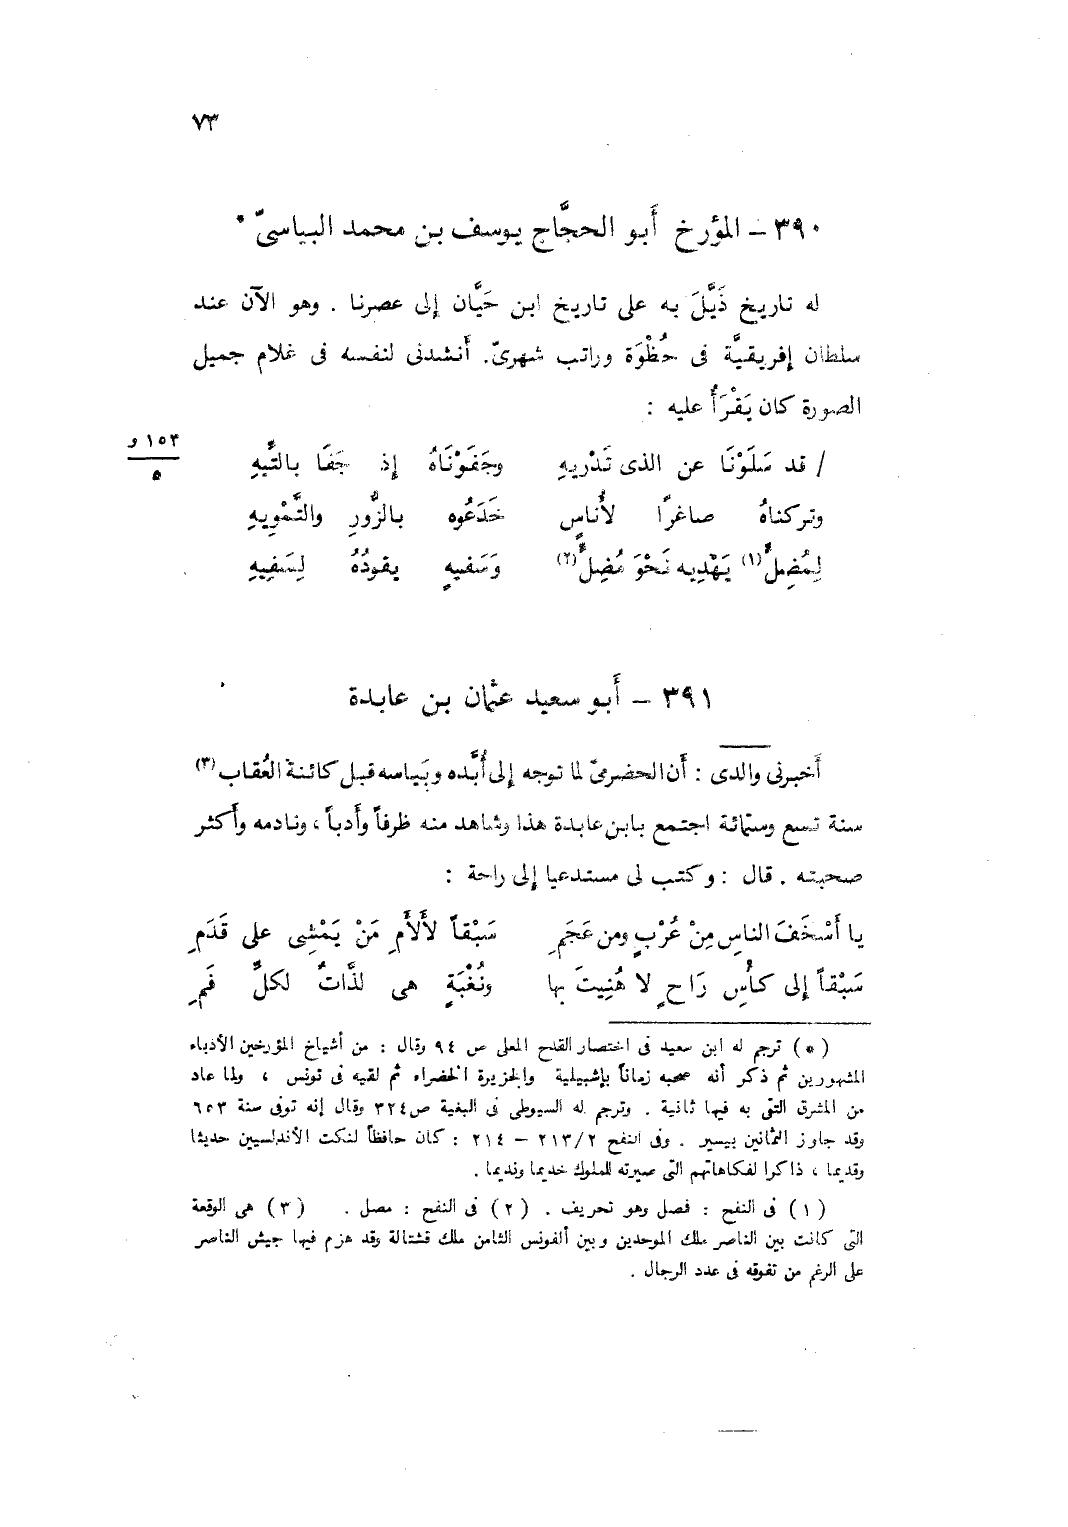 ٧٣
٣٩٠ – المؤرخ أَبو الحجَّاج يوسف بن محمد البياسىّ *
له تاريخ ذَيَّلَ به على تاريخ ابن حَيَّان إلى عصرنا . وهو الآن عند
سلطان إفريقيَّة فى حُظْوَة وراتب شهرىّ. أَنشدنى لنفسه فى غلام جميل
الصورة كان يَقْرَأُ عليه :
١٥٣ و
٥
/ قد سَلَوْنَا عن الذى تَدْرِيهِ وجَفَوْنَاهُ إذ جَفَا بالتِّيهِ
وتركناهُ صاغرًا لأُناسٍ خَدَعُوه بالزُّورِ والتَّمْوِيهِ
لِمُضِلٍّ(١) يَهْدِيه نَحْوَ مُضِلٍّ(٢) وَسَفيهٍ يقودُهُ لِسَفِيهِ
٣٩١ – أَبو سعيد عثمان بن عابدة
أَخبرنى والدى : أَن الحضرمىّ لما توجه إلى أُبَّده وبَياسه قبل كائنة العُقاب(٣)
سنة تسع وستمائة اجتمع بابن عابدة هذا وشاهد منه ظرفاً وأَدباً ، ونادمه وأَكثر
صحبته . قال : وكتب لى مستدعيا إلى راحة :
يا أَسْخَفَ الناسِ مِنْ عُرْبٍ ومن عَجَمِ سَبْقاً لأَلأَمِ مَنْ يَمْشِى على قَدَمِ
سَبْقاً إلى كأْسِ رَاحٍ لا هُنِيتَ بها ونُغْبَةٍ هى لذَّاتٌ لكلِّ فَمِ
(*) ترجم له ابن سعيد فى اختصار القدح المعلى ص ٩٤ وقال : من أشياخ المؤرخين الأدباء
المشهورين ثم ذكر أنه صحبه زماناً بإشبيلية والجزيرة الخضراء ثم لقيه فى تونس ، ولما عاد
من المشرق التقى به فيها ثانية . وترجم له السيوطى فى البغية ص٣٢٤ وقال إنه توفى سنة ٦٥٣
وقد جاوز الثمانين بيسير . وفى النفح ٢١٣/٢ – ٢١٤ : كان حافظاً لنكت الأندلسيين حديثا
وقديما ، ذاكرا لفكاهاتهم التى صيرته للملوك خديما ونديما .
(١) فى النفح : فصل وهو تحريف . (٢) فى النفح : مصل . (٣) هى الوقعة
التى كانت بين الناصر ملك الموحدين وبين ألفونس الثامن ملك قشتالة وقد هزم فيها جيش الناصر
على الرغم من تفوقه فى عدد الرجال .